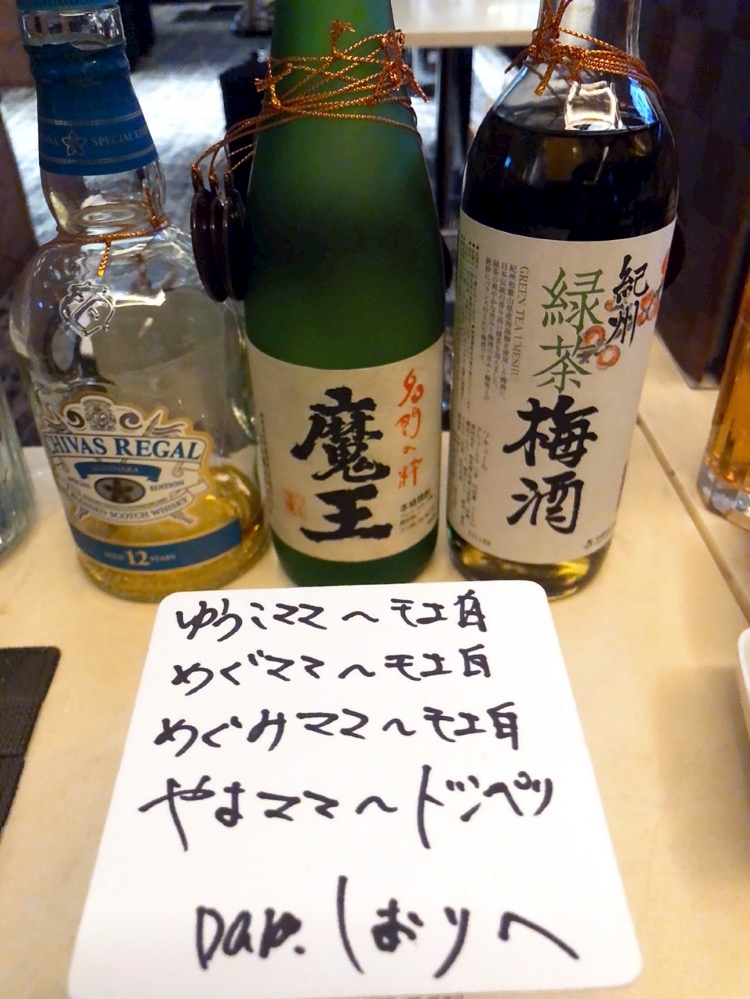 SPECIAL
CHIVAS REGAL
MIZUNARA
SPECIAL EDITION
BLENDED SCOTCH WHISKY
AGED 12 YEARS
名門の粋
魔王
本格焼酎
GREEN TEA UMESHU
紀州
緑茶
梅酒
リキュール
ゆうこママ〜モエ白
めぐママ〜モエ白
めぐみママ〜モエ白
やよママ〜ドンペリ
しおりへ